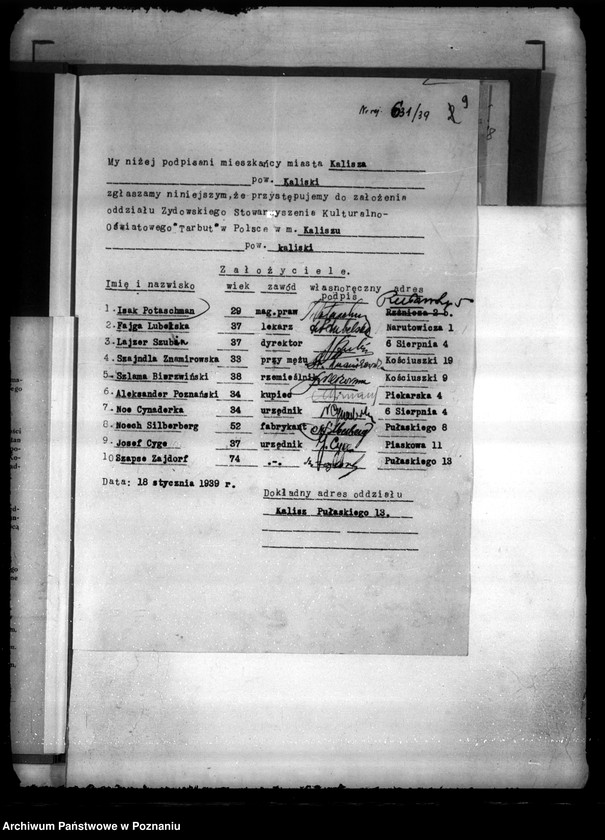 Nr rej. 631/39 9
My niżej podpisani mieszkańcy miasta Kalisza
pow. Kaliski
zgłaszamy niniejszym, że przystępujemy do założenia
oddziału Żydowskiego Stowarzyszenia Kulturalno-
Oświatowego "Tarbut" w Polsce w m. Kaliszu
pow. kaliski
Założyciele.
Imię i nazwisko wiek zawód własnoręczny podpis adres
1. Isak Potaschman 29 mag.praw
2. Fajga Lubelska 37 lekarz Narutowicza 1
3. Lajzer Szubin 37 dyrektor 6 Sierpnia 4
4. Szajndla Znamirowska 33 przy mężu Kościuszki 19
5. Szlama Bierzwiński 38 rzemieślnik Kościuszki 9
6. Aleksander Poznański 34 kupiec Piekarska 4
7. Noe Cynaderka 34 urzędnik 6 Sierpnia 4
8. Noech Silberberg 52 fabrykant Pułaskiego 8
9. Josef Cyge 37 urzędnik J. Cyge Piaskowa 11
10 Szapse Zajdorf 74 .-. Pułaskiego 13
Data: 18 stycznia 1939 r.
Dokładny adres oddziału
Kalisz Pułaskiego 13.
Archiwum Państwowe w Poznaniu